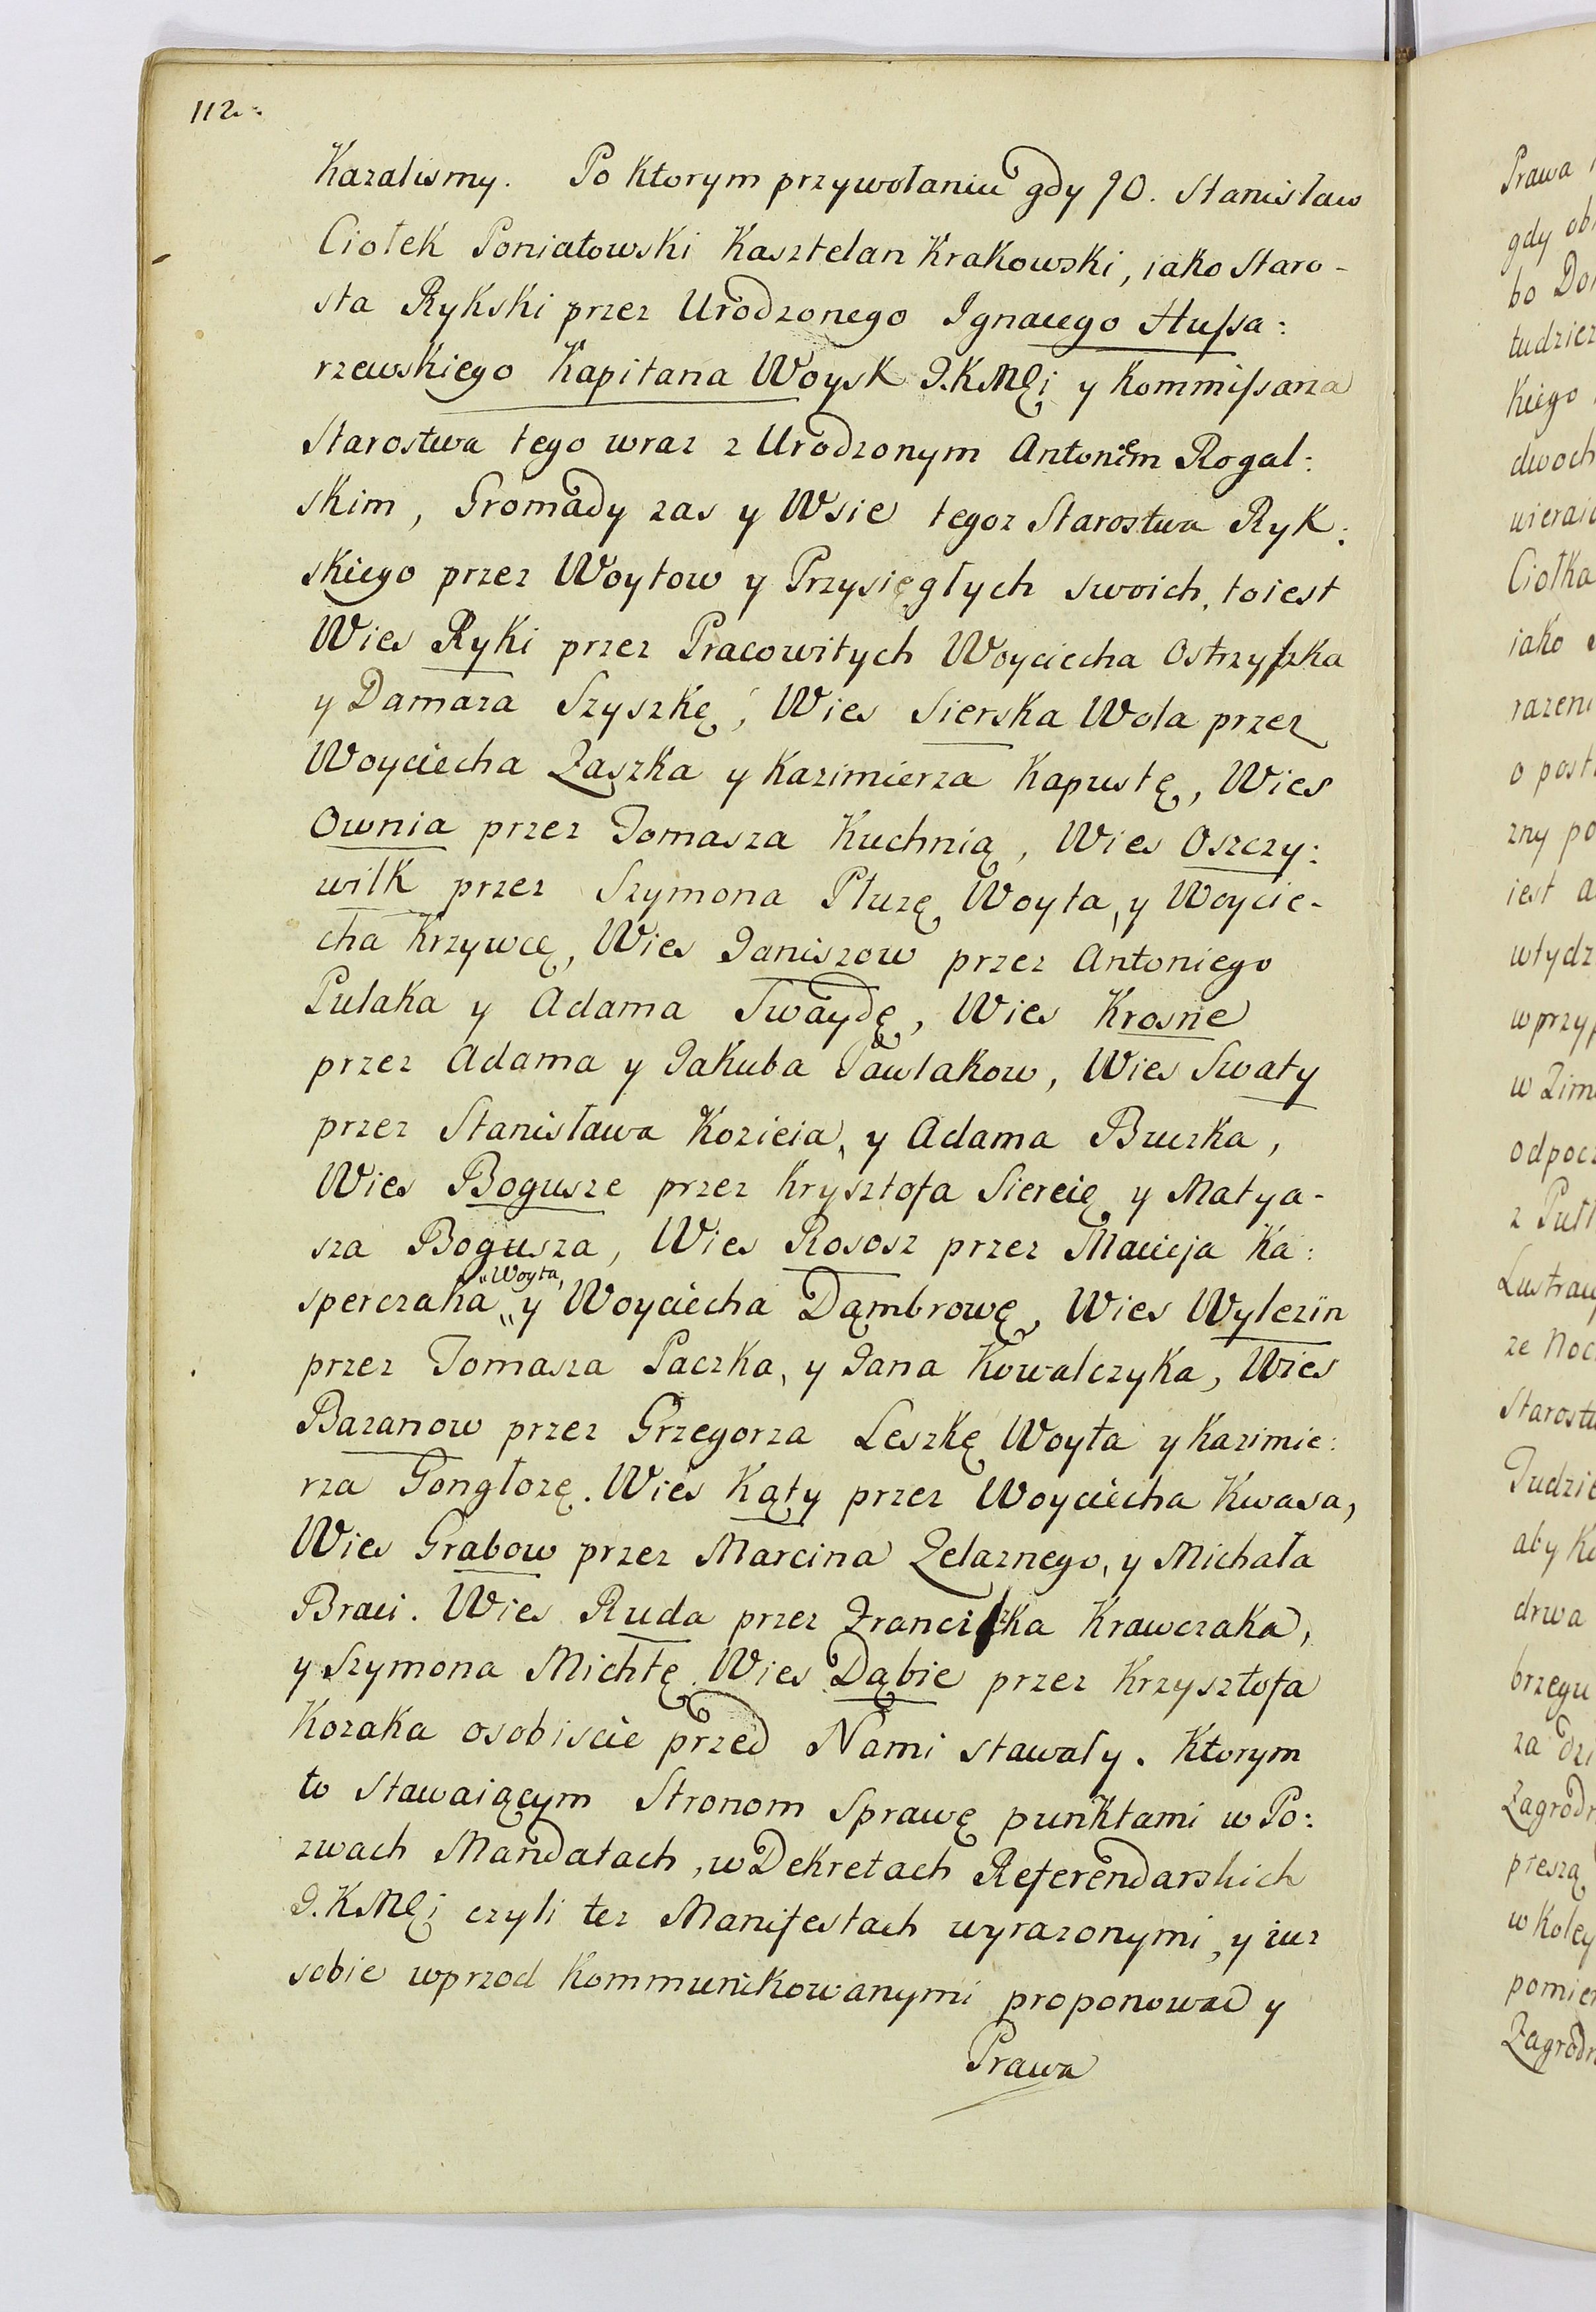 112.
Kazalismy. Po Ktorym przywołaniu gdy JO. Stanisław
Ciołek Poniatowski Kasztelan Krakowski, iako Staro-
sta Rykski przez Urodzonego Ignacego Hussa:
rzewskiego Kapitana Woysk J.KMCi y Kommissarza
Starostwa tego wraz z Urodzonym Antoniem Rogal:
skim, Gromady zas y Wsie tegoz Starostwa Ryk:
skiego przez Woytow y Przysięgłych swoich, toiest
Wies Ryki przez Pracowitych Woyciecha Ostrzyszka
y Damaza Szyszkę, Wies Sierska Wola przez
Woyciecha Zaszka y Kazimierza Kapustę, Wies
Ownia przez Tomasza Kuchnią, Wies Oszczy:
wilk przez Szymona Płuzę Woyta, y Woycie-
cha Krzywcę, Wies Janiszow przez Antoniego
Pulaka y Adama Twaydę, Wies Krosne
przez Adama y Jakuba Pawlakow, Wies Swaty
przez Stanisława Kozieia, y Adama Bruzka,
Wies Bogusze przez Krysztofa Siereię y Matya-
sza Bogusza, Wies Rososz przez Macieja Ka:
"Woyta,
sperczaka " y Woyciecha Dąmbrowę, Wies Wylezin
przez Tomasza Paczka, y Jana Kowalczyka, Wies
Bazanow przez Grzegorza Leszkę Woyta y Kazimie:
rza Gongłozę. Wies Kąty przez Woyciecha Kwasa,
Wies Grabow przez Marcina Zelaznego, y Michała
Braci. Wies Ruda przez Franciszka Krawczaka,
y Szymona Michtę. Wies Dąbie przez Krzysztofa
Kozaka osobiscie przed Nami stawały. Ktorym
to Stawaiącym Stronom Sprawę punktami w Po:
zwach Mandatach, w Dekretach Referendarskich
J.KMCi czyli tez Manifestach wyrazonymi, y iuz
sobie wprzod Kommunikowanymi proponowac y
Prawa
Prawa
gdy
bo
tudziez
kiego
dwoch
Ciołka
iako
o
zny
iest
w
z
ze
Starostw
aby
drwa
brzegu
za